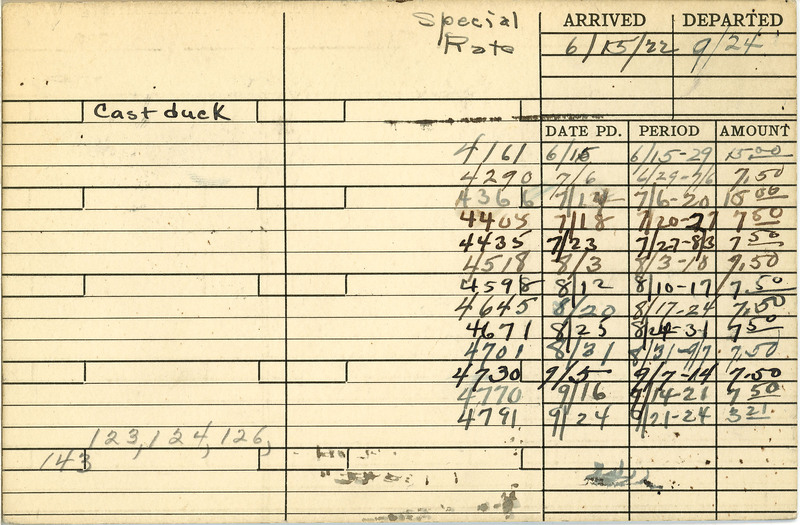 Special ARRIVED DEPARTED
Rate 6/15/22 9/24
Cast duck
DATE PD. PERIOD AMOUNT
4161 6/15 6/15-29 15.00
4290 7/6 6/29-7/6 7.50
436 7/14 7/6-20 15 00
4405 7/18 7/20-27 7 50
4435 7/23 7/27-8/3 7 50
4518 8/3 8/3-10 7.50
4598 8/12 8/10-17 7.50
4645 8/20 8/17-24 7.50
4671 8/25 8/24-31 7 50
4701 8/31 8/31-9/7 7.50
4730 9/5 9/7-14 7.50
4770 9/16 9/14-21 7 50
4791 9/24 9/21-24 3 21
123, 124, 126,
143